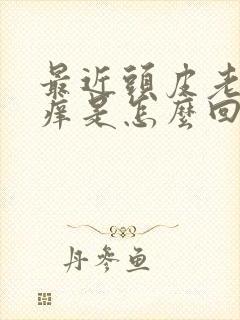 最近頭皮老
痒是怎麼回
丹參魚